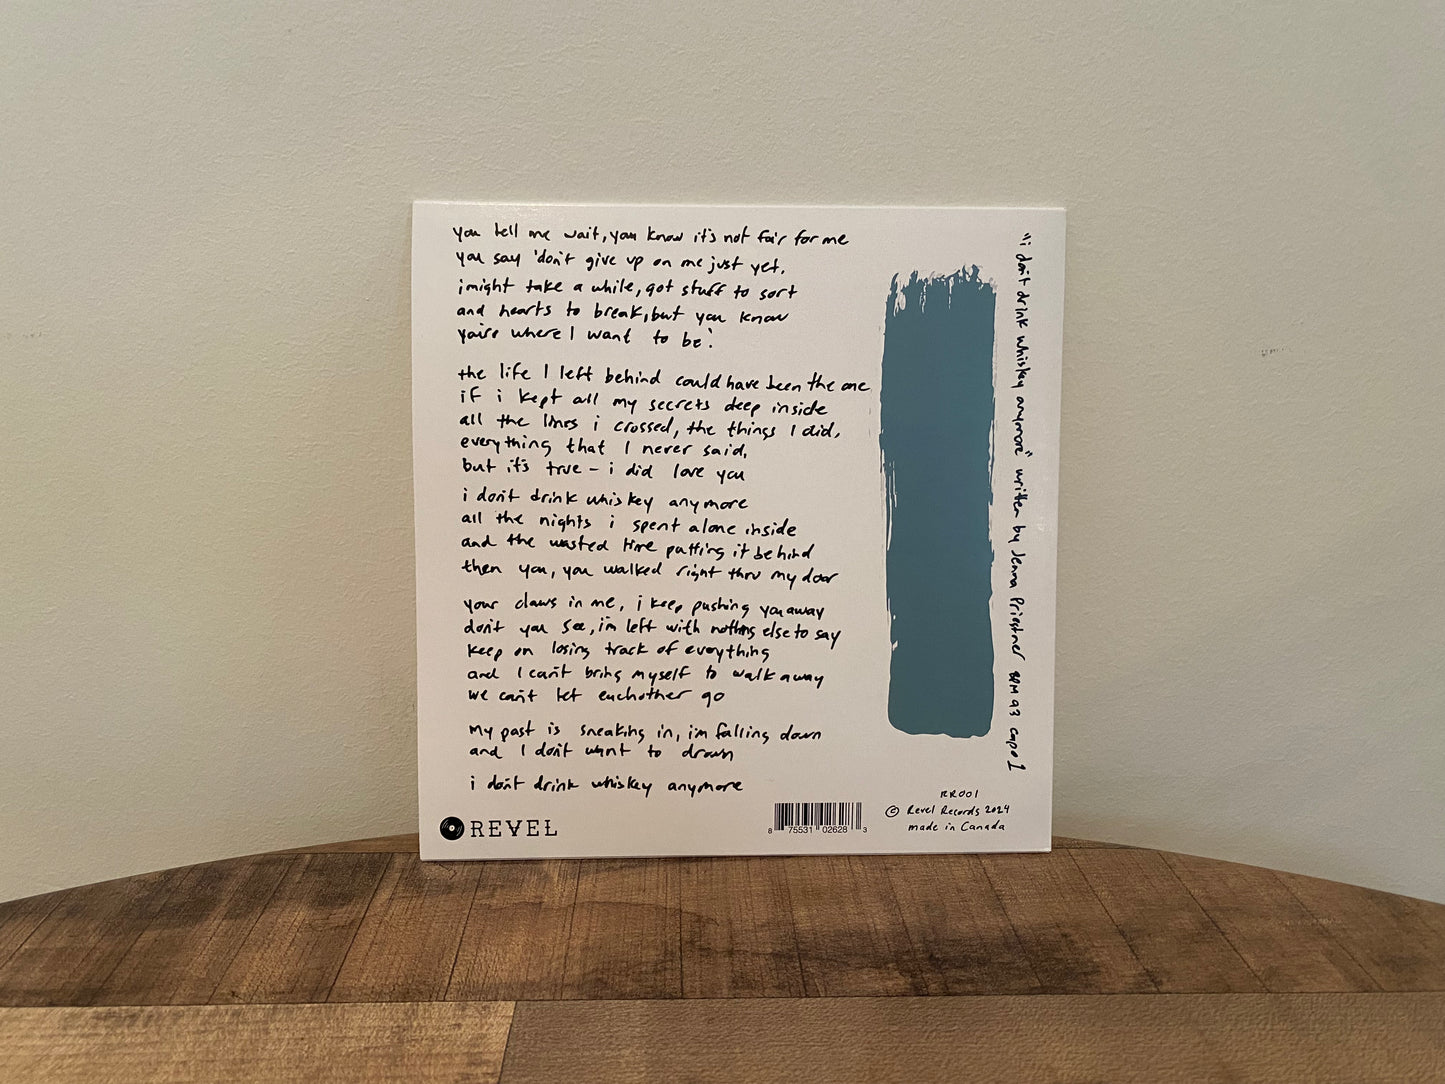 you tell me wait, you know it's not fair for me
you say 'don't give up on me just yet.
i might take a while, got stuff to sort
and hearts to break, but you know
you're where I want to be'.
the life I left behind could have been the one
if i kept all my secrets deep inside
all the lines i crossed, the things I did,
everything that I never said,
but it's true - i did love you
i don't drink whiskey anymore
all the nights i spent alone inside
and the wasted time putting it behind
then you, you walked right thru my door
your claws in me, i keep pushing you away
don't you see, i'm left with nothing else to say
keep on losing track of everything
and I can't bring myself to walk away
we can't let eachother go
my past is sneaking in, i'm falling down
and I don't want to drown
i don't drink whiskey anymore
REVEL
8 75531 02628 3
RR001
© Revel Records 2024
made in Canada
"i don't drink whiskey anymore" written by Jenna Priestner BPM 93 capo 1